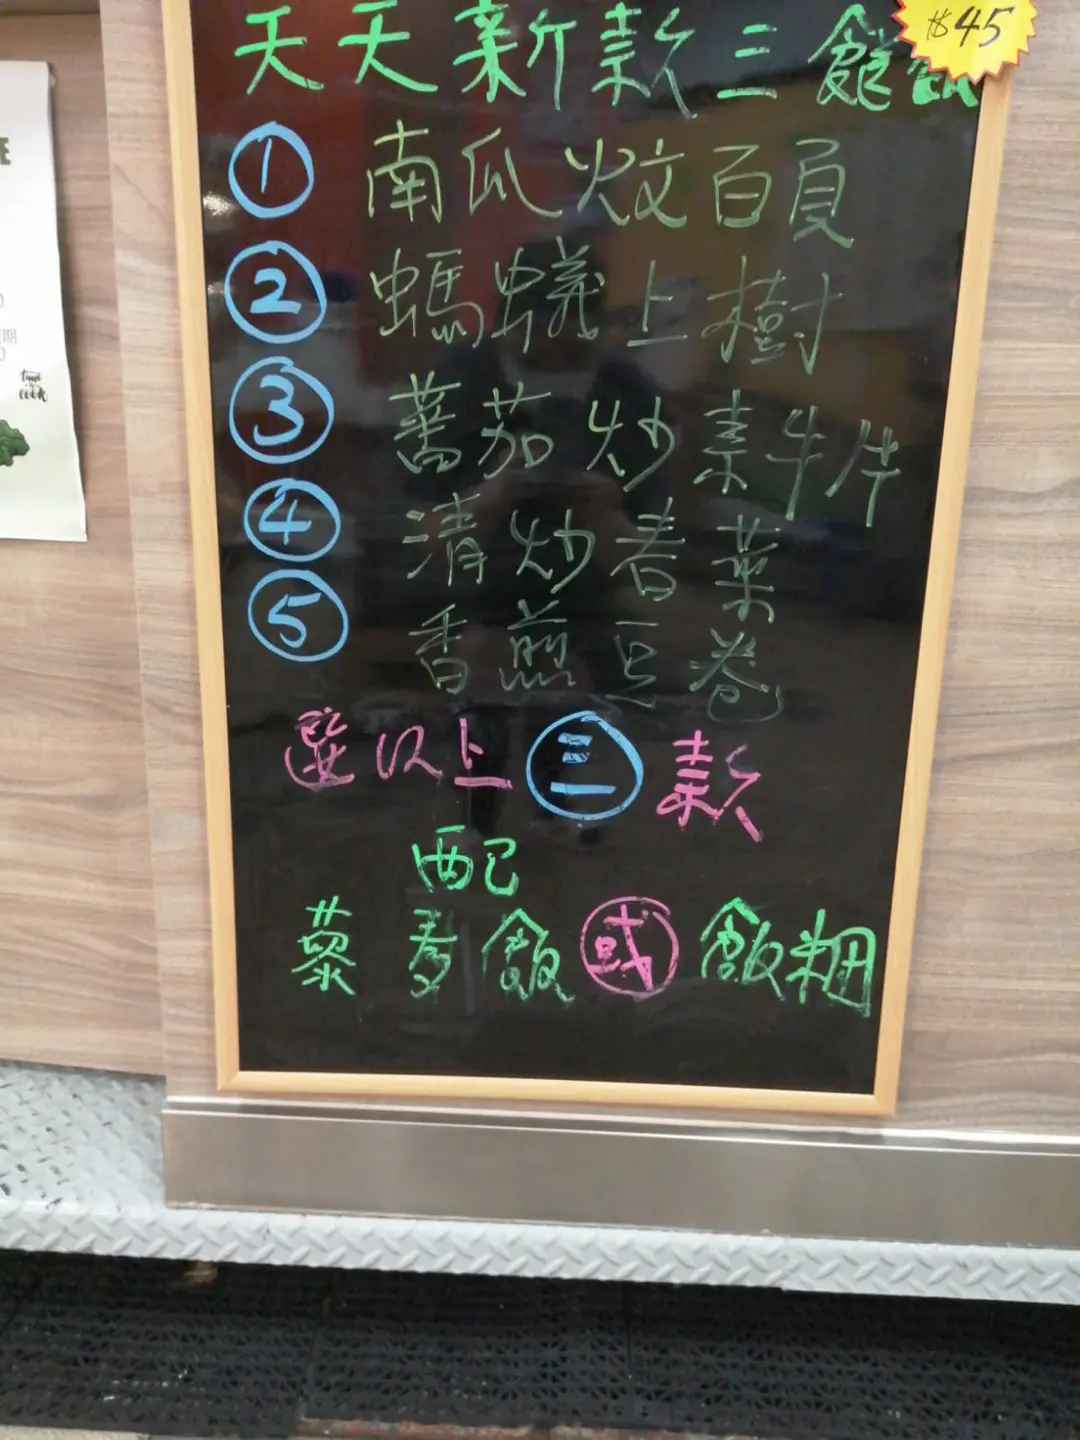 $45
天天新款三餸飯
① 南瓜炆百頁
② 螞蟻上樹
③ 蕃茄炒素牛片
④ 清炒春菜
⑤ 香煎豆卷
選以上三款
配
藜麥飯或飯糰
time
cook
期
E